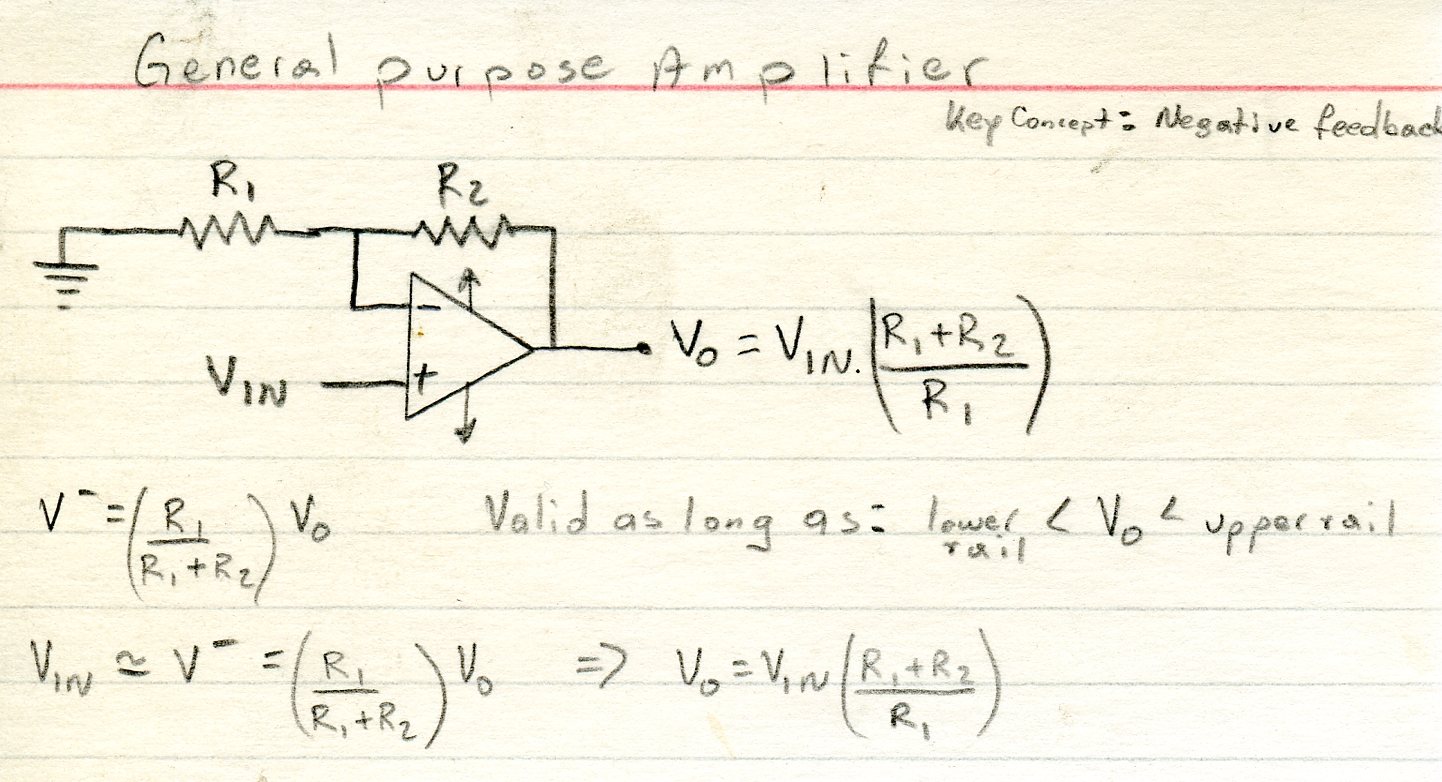 General purpose Amplifier
Key Concept: Negative feedback
R₁ R₂
-
+
V_IN
V_O = V_IN. (R₁+R₂ / R₁)
V⁻ = (R₁ / R₁+R₂) V_O Valid as long as: lower rail < V_O < upper rail
V_IN ≃ V⁻ = (R₁ / R₁+R₂) V_O => V_O = V_IN (R₁+R₂ / R₁)